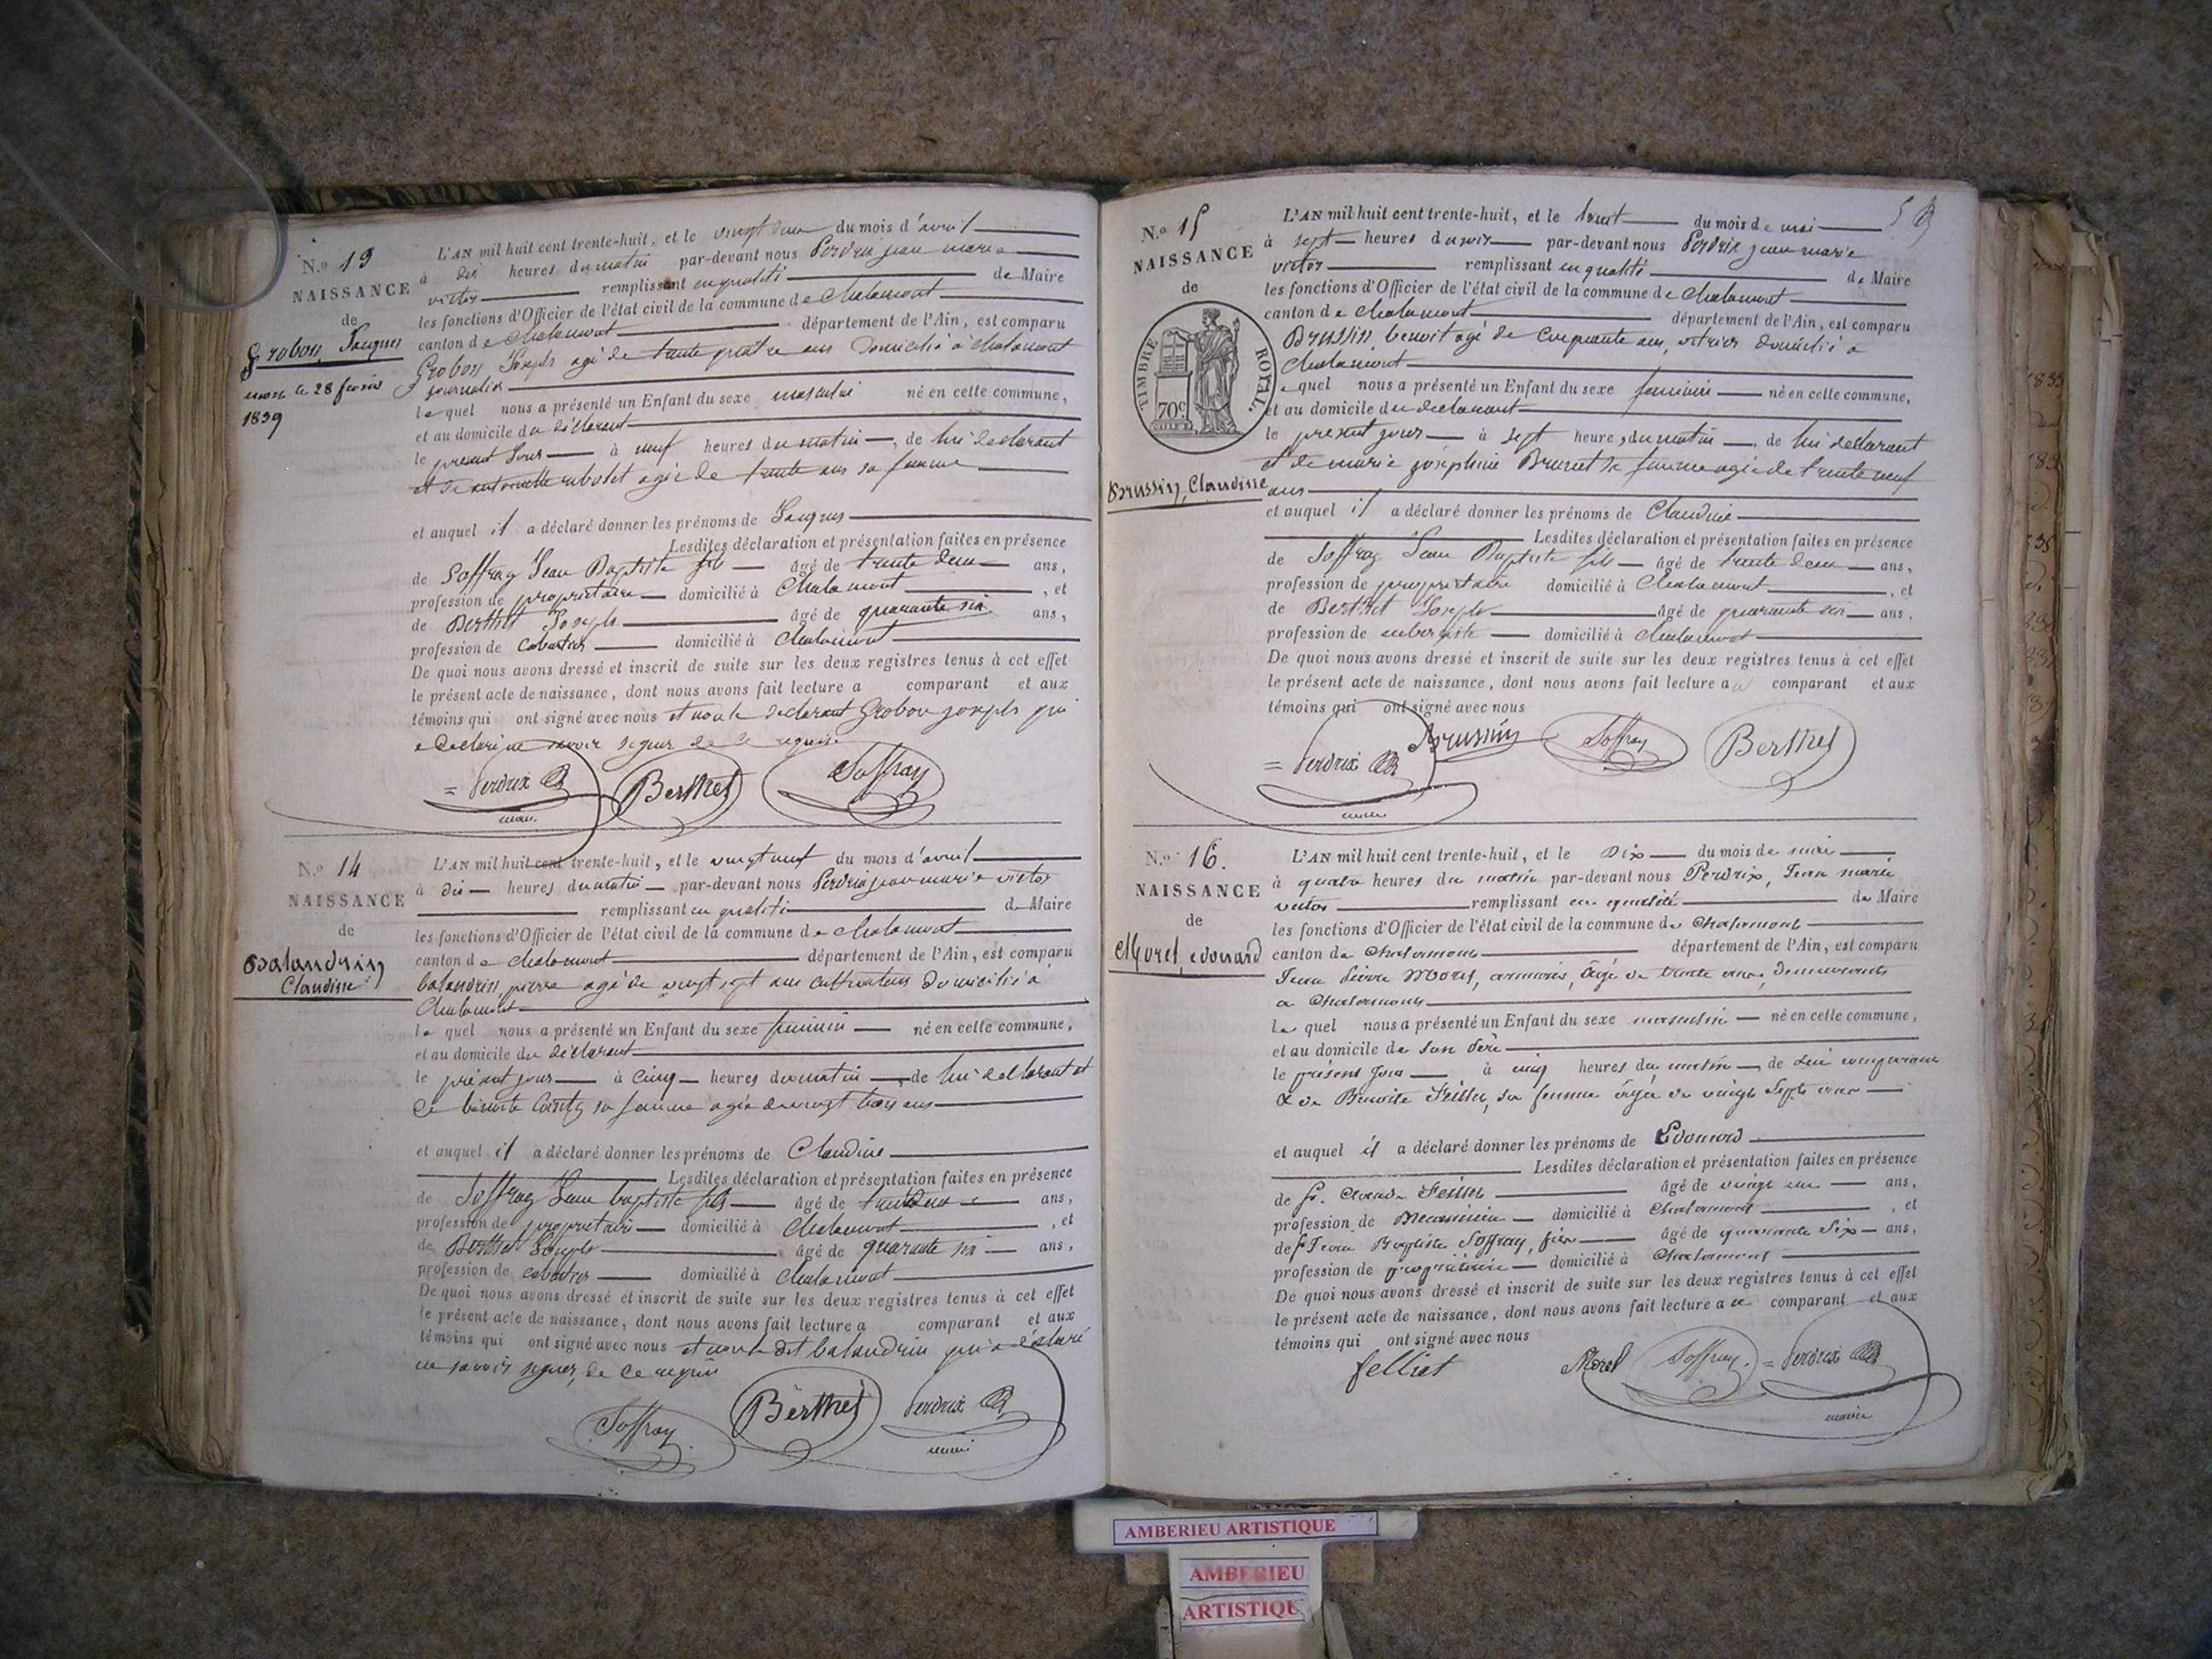 N.º 13
NAISSANCE
de
Grobon, Jacques
mort le 28 février
1839
L'AN mil huit cent trente-huit, et le vingt deux du mois d'avril
à dix heures du matin par-devant nous Perdrix jean marie
victor remplissant en qualité de Maire
les fonctions d'Officier de l'état civil de la commune de Chalamont
canton de chalamont département de l'Ain, est comparu
Grobon Joseph agé de trente quatre ans Domicilié à chalamont
journalier
lequel nous a présenté un Enfant du sexe masculin né en cette commune,
et au domicile du déclarant
le présent Jour à neuf heures du matin, de lui declarant
et de antoinette agée de trente ans sa femme
et auquel il a déclaré donner les prénoms de Jacques
Lesdites déclaration et présentation faites en présence
de Soffray Jean Baptiste fils âgé de trente deux ans,
profession de proprietaire domicilié à Chalamont, et
de Berthet Joseph âgé de quarante six ans,
profession de domicilié à chalamont
De quoi nous avons dressé et inscrit de suite sur les deux registres tenus à cet effet
le présent acte de naissance, dont nous avons fait lecture a comparant et aux
témoins qui ont signé avec nous et non le declarant Grobon joseph qui
a declaré ne savoir signer de ce requis.
= Perdrix Berthet Soffray
maire
N.º 14
NAISSANCE
de
Balandrin
Claudine
L'AN mil huit cent trente-huit, et le vingt neuf du mois d'avril
à dix heures du matin par-devant nous Perdrix jean marie victor
remplissant en qualité de Maire
les fonctions d'Officier de l'état civil de la commune de chalamont
canton de chalamont département de l'Ain, est comparu
balandrin pierre agé de vingt sept ans cultivateur domicilié à
Chalamont
lequel nous a présenté un Enfant du sexe feminin né en cette commune,
et au domicile du déclarant
le présent jour à cinq heures du matin, de lui declarant et
de benoite sa femme agée de vingt trois ans
et auquel il a déclaré donner les prénoms de Claudine
Lesdites déclaration et présentation faites en présence
de Soffray Jean baptiste fils âgé de trente deux ans,
profession de proprietaire domicilié à Chalamont, et
de Berthet Joseph âgé de quarante six ans,
profession de domicilié à chalamont
De quoi nous avons dressé et inscrit de suite sur les deux registres tenus à cet effet
le présent acte de naissance, dont nous avons fait lecture a comparant et aux
témoins qui ont signé avec nous et non le dit balandrin qui a déclaré
ne savoir signer, de ce requis
Soffray Berthet Perdrix
maire
N.º 15
NAISSANCE
de
TIMBRE ROYAL.
70c
Brussin, Claudine
L'AN mil huit cent trente-huit, et le du mois de mai
à sept heures du soir par-devant nous Perdrix jean marie
victor remplissant en qualité de Maire
les fonctions d'Officier de l'état civil de la commune de chalamont
canton de chalamont département de l'Ain, est comparu
Brussin, benoit agé de cinquante ans, vitrier domicilié a
chalamont
lequel nous a présenté un Enfant du sexe feminin né en cette commune,
et au domicile du declarant
le présent jour à sept heures du matin, de lui declarant
et de marie josephine Brunet sa femme agée de trente neuf
ans
et auquel il a déclaré donner les prénoms de Claudine
Lesdites déclaration et présentation faites en présence
de Soffray Jean Baptiste fils âgé de trente deux ans,
profession de proprietaire domicilié à Chalamont, et
de Berthet Joseph âgé de quarante six ans,
profession de aubergiste domicilié à chalamont
De quoi nous avons dressé et inscrit de suite sur les deux registres tenus à cet effet
le présent acte de naissance, dont nous avons fait lecture au comparant et aux
témoins qui ont signé avec nous
= Perdrix Brussin Soffray Berthet
maire
N.º 16.
NAISSANCE
de
Morel, edouard
L'AN mil huit cent trente-huit, et le Dix du mois de mai
à quatre heures du matin par-devant nous Perdrix, Jean marie
victor remplissant en qualité de Maire
les fonctions d'Officier de l'état civil de la commune de Chalamont
canton de Chalamont département de l'Ain, est comparu
Jean Pierre Morel, âgé de trente ans, demeurant
a Chalamont
lequel nous a présenté un Enfant du sexe masculin né en cette commune,
et au domicile de son Père
le présent Jour à cinq heures du matin, de lui comparant
& de Benoite, sa femme âgée de vingt Sept ans
et auquel il a déclaré donner les prénoms de Edouard
Lesdites déclaration et présentation faites en présence
de âgé de vingt ans,
profession de domicilié à Chalamont, et
de Jean Baptiste Soffray, âgé de quarante Six ans,
profession de propriétaire domicilié à Chalamont
De quoi nous avons dressé et inscrit de suite sur les deux registres tenus à cet effet
le présent acte de naissance, dont nous avons fait lecture au comparant et aux
témoins qui ont signé avec nous
felliet Morel Soffray = Perdrix
maire
AMBERIEU ARTISTIQUE
AMBERIEU
ARTISTIQUE